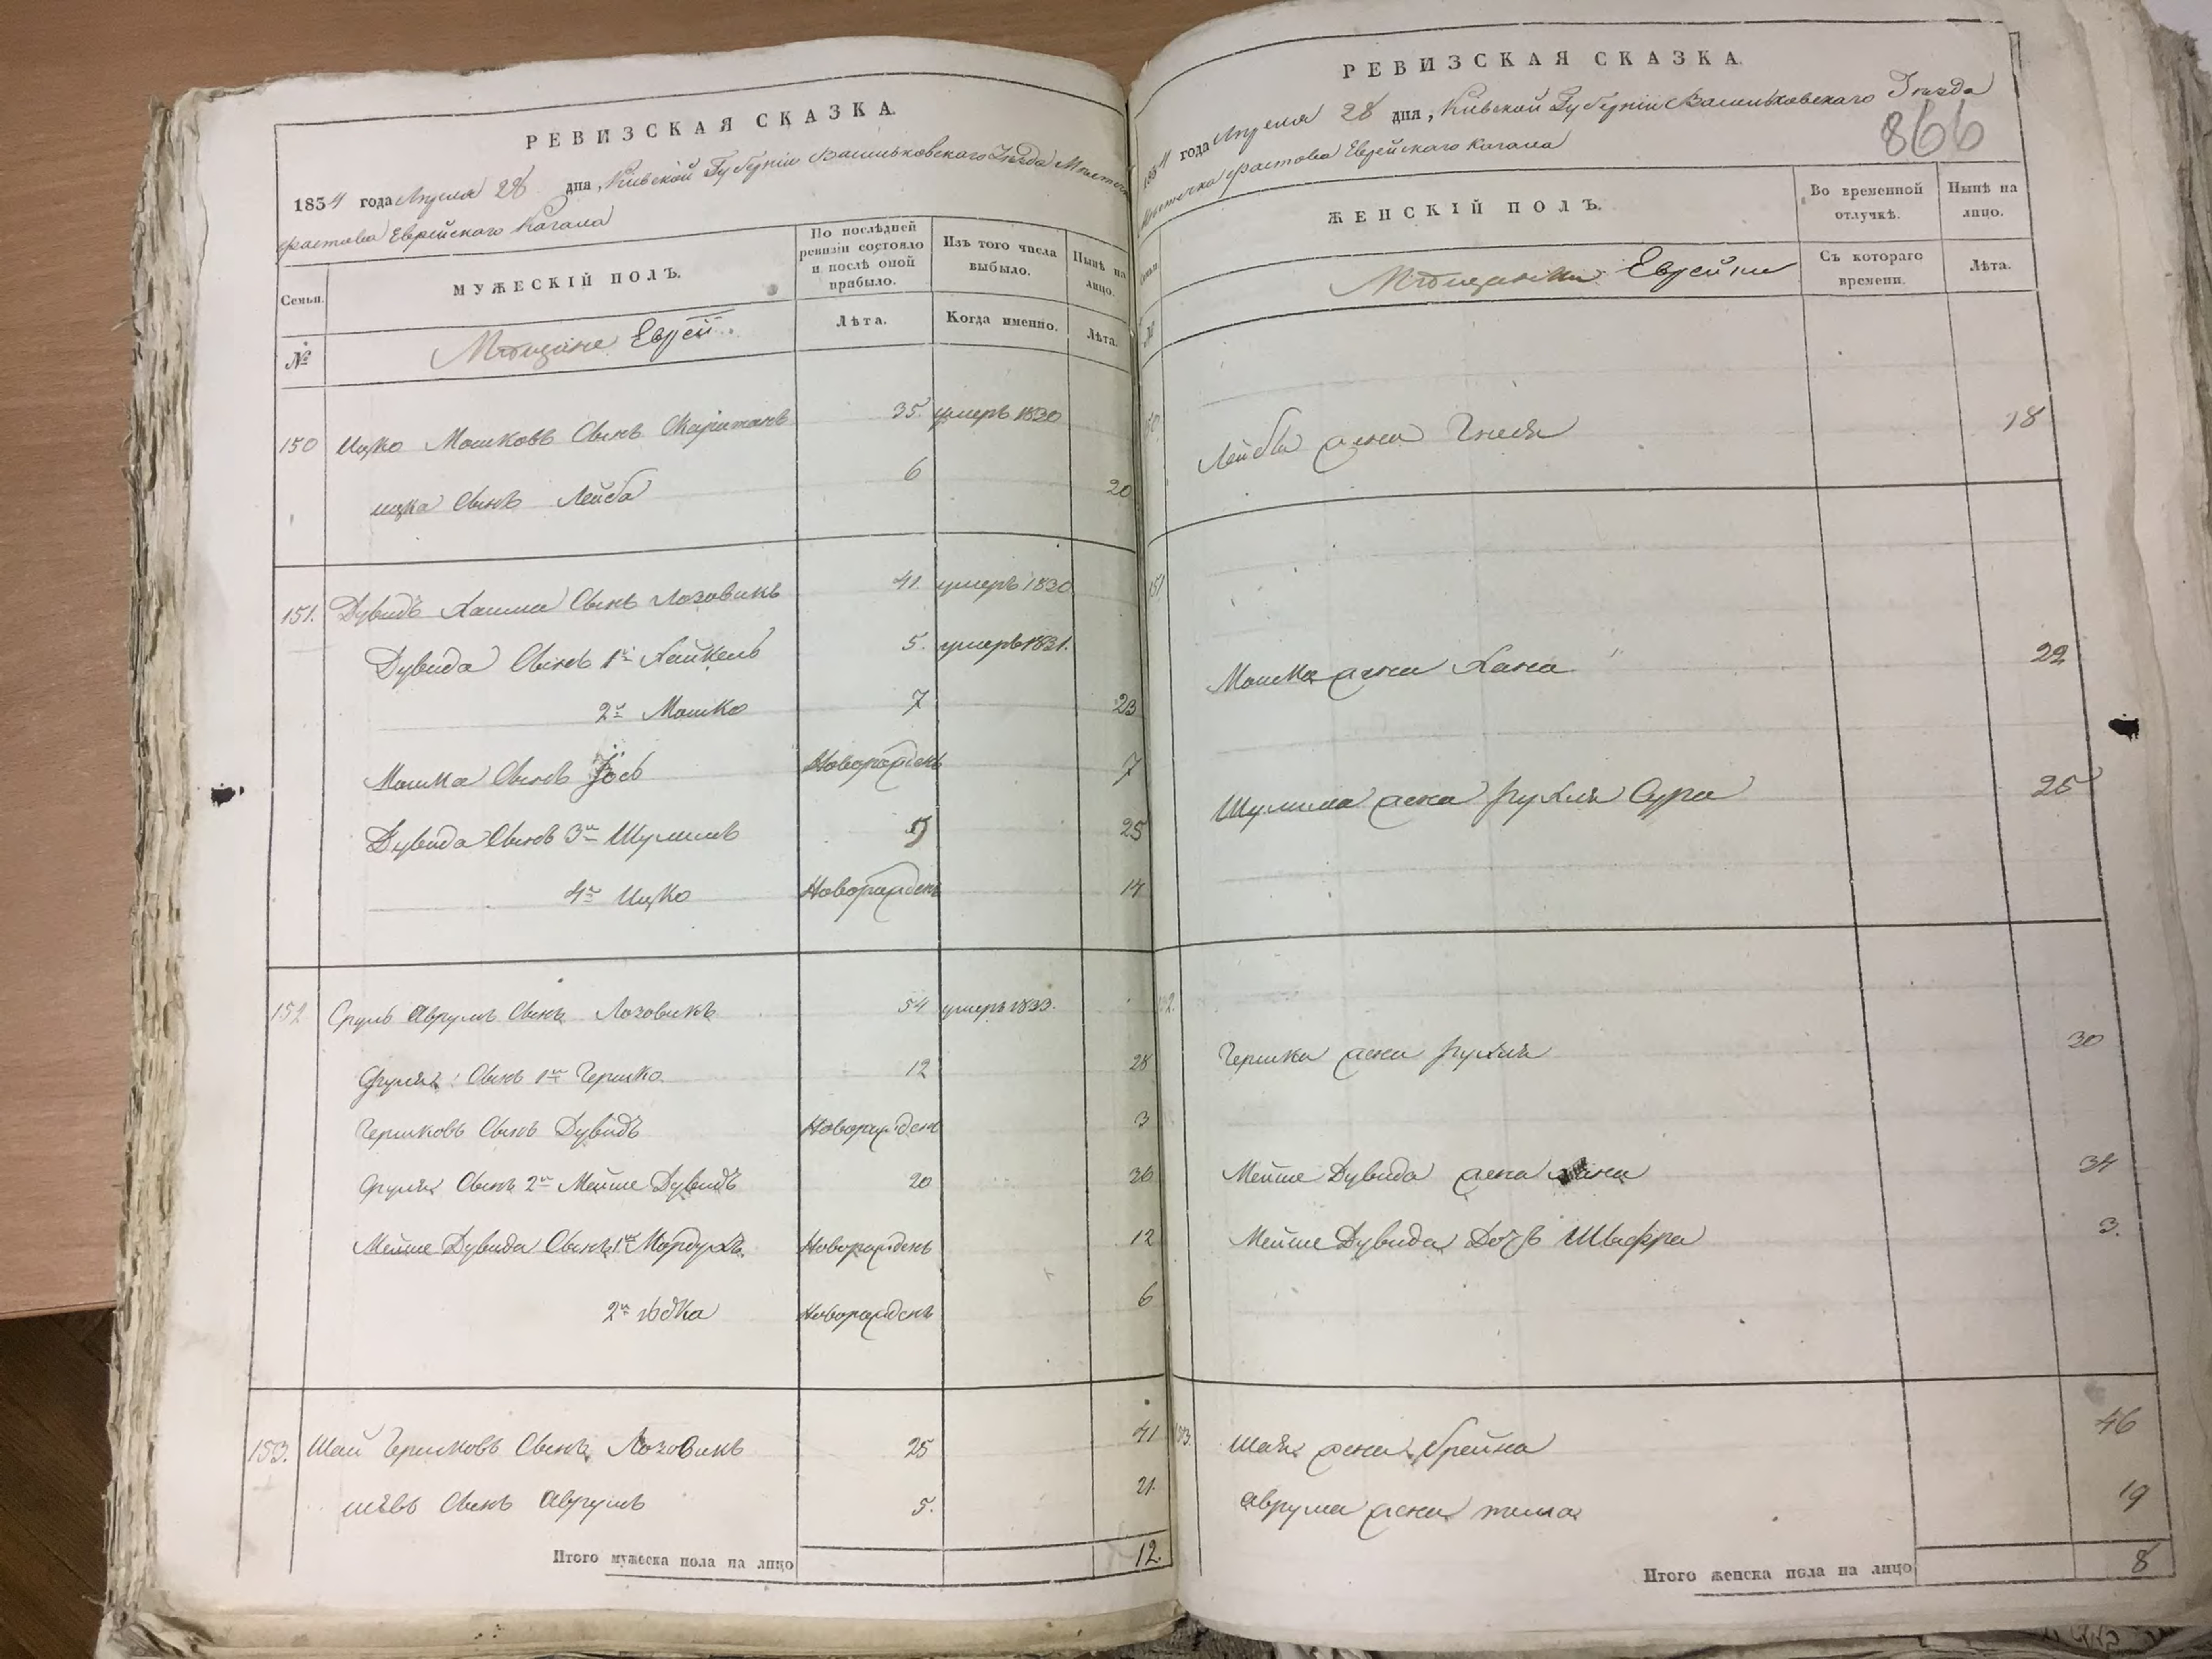 РЕВИЗСКАЯ СКАЗКА.
1834 года Апреля 28 дня, Киевской Губернiи Васильковскаго Уезда Местечка
Фастова Еврейскаго Кагала
Семьи.
МУЖЕСКІЙ ПОЛЪ.
По послѣдней ревизіи состояло и послѣ оной прибыло.
Изъ того числа выбыло.
Нынѣ на лицо.
№
Мѣщане Евреи.
Лѣта.
Когда именно.
Лѣта.
150 Ицко Мошковъ Сынъ 35. умеръ 1830
ицка Сынъ Лейба 6 20
151. Дувидъ Хаима Сынъ Лозовикъ 41. умеръ 1830
Дувида Сынъ 1й Хайкель 5. умеръ 1831.
2й Мошко 7 23
Мошка Сынъ Іось Новорожденъ 7
Дувида Сынъ 3й Шулимъ 25
4й Ицко Новорожденъ 14
152 Сруль Аврумъ Сынъ Лозовикъ 54 умеръ 1833.
Сруля: Сынъ 1й Гершко 12 28
Гершковъ Сынъ Дувидъ Новорожденъ 3
Сруля Сынъ 2й Мейше Дувидъ 20 36
Мейше Дувида Сынъ 1й Мордухъ Новорожденъ 12
2й Новорожденъ 6
153. Шай Гершковъ Сынъ Лозовикъ 25 41
Сынъ Аврумъ 5. 21.
Итого мужеска пола на лицо 12.
РЕВИЗСКАЯ СКАЗКА.
1834 года Апреля 28 дня, Киевской Губернiи Васильковскаго Уезда
866
Местечка Фастова Еврейскаго Кагала
ЖЕНСКІЙ ПОЛЪ.
Во временной отлучкѣ.
Нынѣ на лицо.
№
Мѣщанки Еврейки
Съ котораго времени.
Лѣта.
150 Лейбы жена 18
151
Мошка жена Хана 22
Шулима жена Рухля Сура 25
152.
Гершка жена Рухля 30
Мейше Дувида жена 34
Мейше Дувида Дочь Шифра 3.
153. Шая жена Брейна 46
Аврума жена 19
Итого женска пола на лицо 8